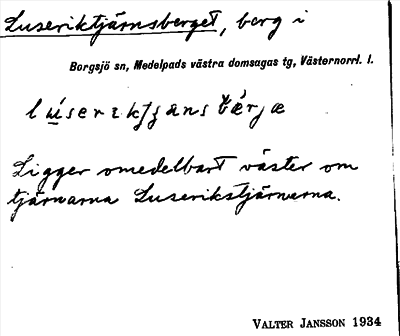 Luseriktjärnsberget, berg i
Borgsjö sn, Medelpads västra domsagas tg, Västernorrl. l.
Ligger omedelbart väster om
tjärnarna Luserikstjärnarna.
VALTER JANSSON 1934